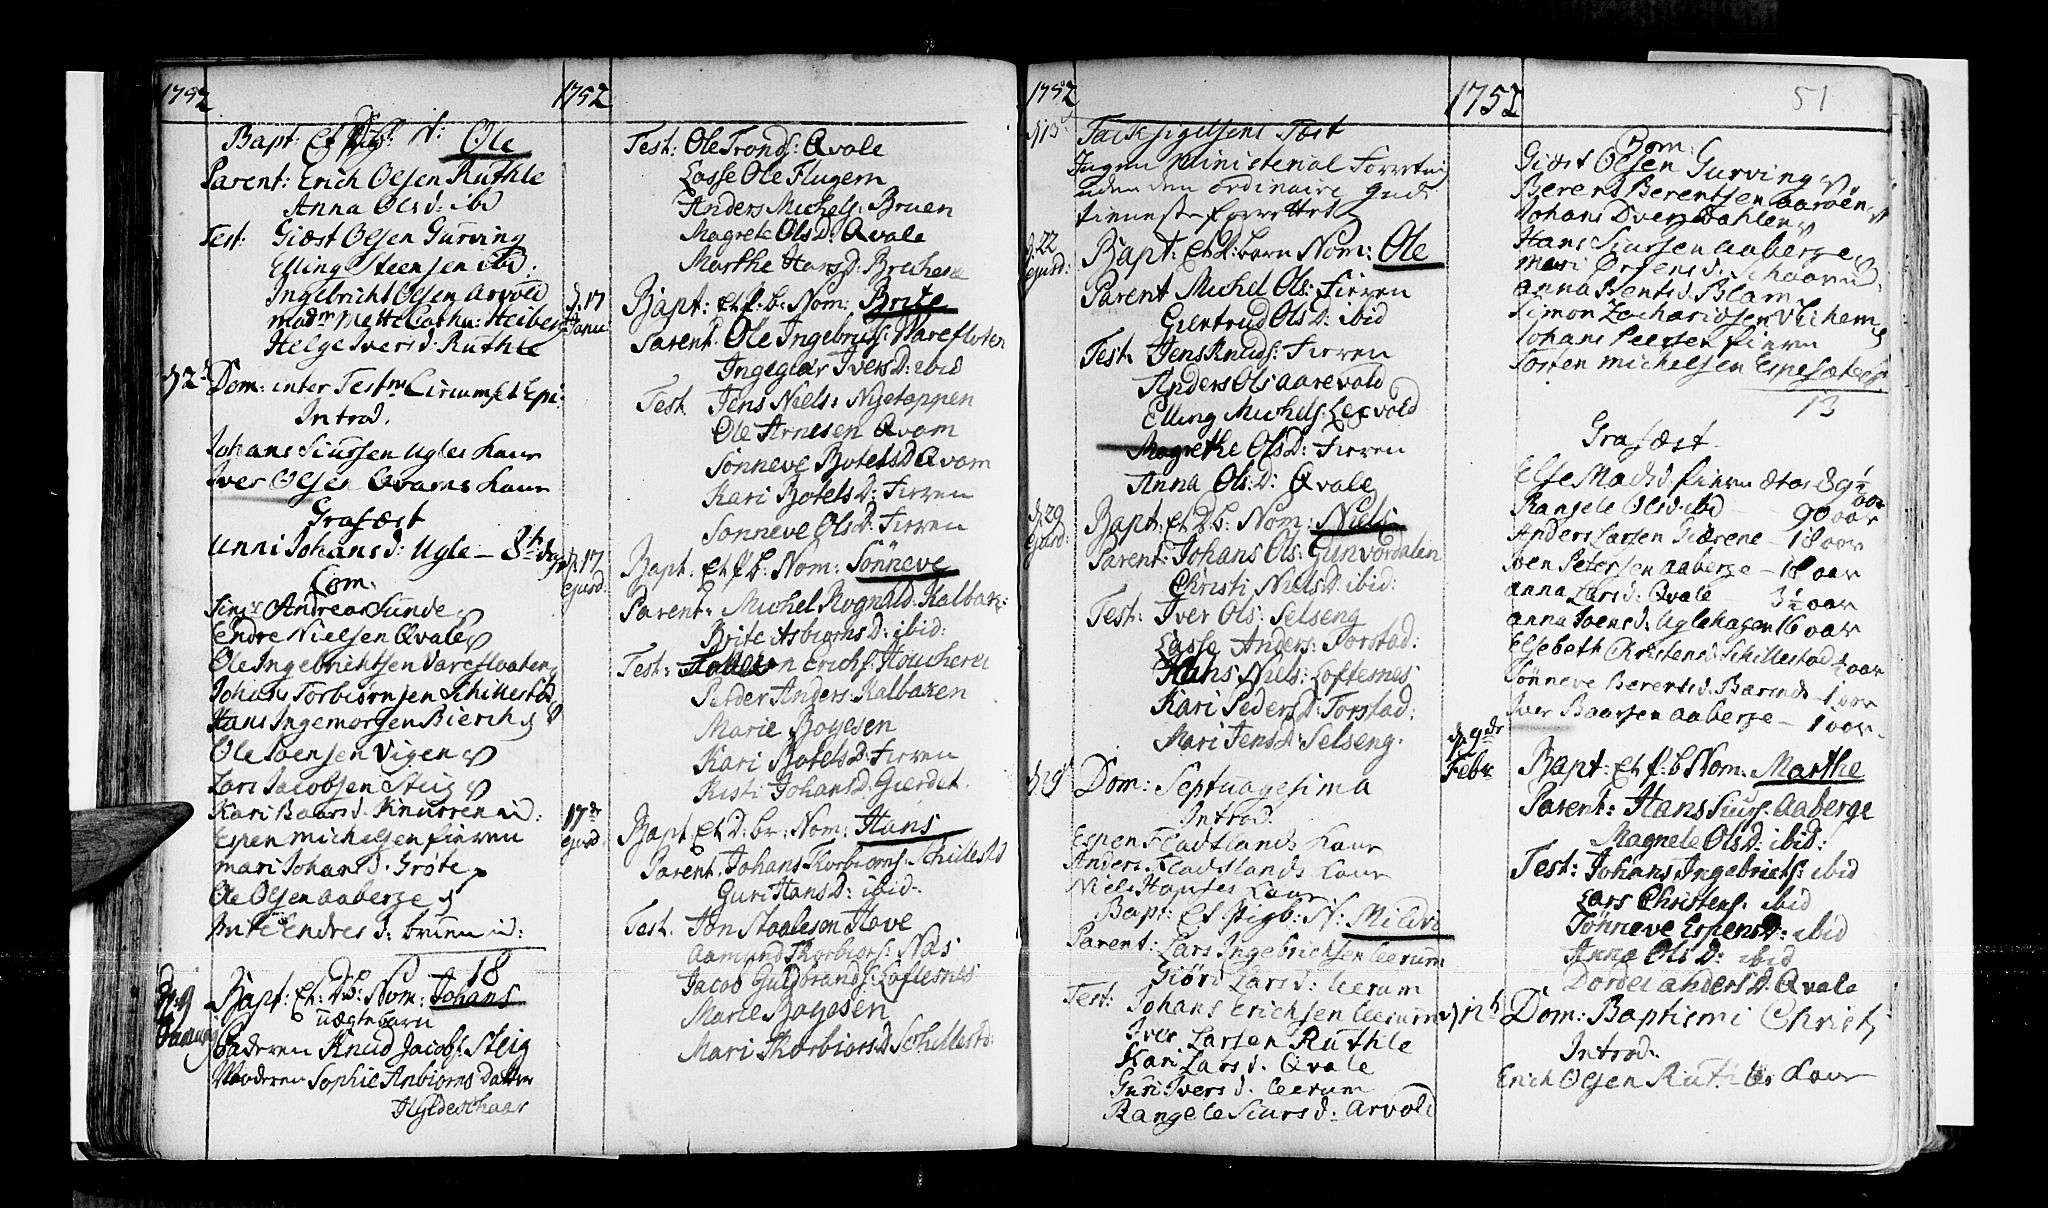 1752
Bapt: Et N: Ole
Parent: Erich Olsen Ruthle
Anna Olsd: ibd
Test: Giæst Olsen Gurving
Elling Steensen ibd:
Ingebricht Olsen Arvold
Madm Mette Cathr: Heiberg
Helge Ivers d: Ruthle
Dom: inter Festm Circumf et Epi:
Introd.
Johans Siursen Ugles Kone
Iver Olsen Qvams Kone
Grafæst
Unni Johans d: Ugle – 8t dag
Com:
Sing:r Andreas Sunde
Endre Nielsen Qvale
Ole Ingebrichtsen Varefloaten
Johans Torbiørnsen Schillestad
Hans Ingemorsen Bierch
Ole Joensen Vigen
Lars Jacobsen Steig
Kari Baars d. Knurren
Espen Michelsen Fierren
Mari Johans d. Grøte
Ole Olsen Aaberge
Brite Endres d: Bruen
18
d: 9 Januarij
Bapt: Et: Nom: Johans
uægte barn
Faderen Knud Jacobs: Steig
Moderen Sophie Anbiørns Datter
Hyldeschaar
1752
Test: Ole Tronds: Qvale
Lasse Ole Flugem
Anders Michels: Bruen
Magrete Ols D: Qvale
Marthe Hans d: Bruchene
d. 17 Janu:
Bapt: et f. b. Nom: Brite
Parent. Ole Ingebrigs: Warefloten
Ingegiær Ivers D: ibid
Test. Jens Niels: Nyetappen
Ole Arnesen Qvam
Sønneve Botels D Qvam
Kari Botels D: Fierren
Sonneve Ols D: Fierren
d. 17 ejusd:
Bapt. Et f. b. Nom: Sønneve
Parent: Michel Rognald: Kalbak:
Brite Asbiørns D: ibid:
Test: Erichs: Houcheren
Peder Anders: Kalbaken
Marie Boyesen
Kari Botels D: Fierren
Kisti Johans D. Gierdet.
17de ejusd:
Bapt. Et D: br: Nom: Hans
Parent. Johans Thorbiorns: Schillestd
Guri Hans D: ibid:
Test. Jon Staalesøn Hove
Aamund Thorbiors: Næs
Jacob Guldbrands: Loftesnes
Marie Boyesen
Mari Thorbiors D Schillestd:
1752
d 13
Tacksigelsens Fæst
Ingen Ministerial Forretni
uden den ordinaire Guds
tieneste forrettet
d. 22 ejusd:
Bapt: et D: barn Nom: Ole
Parent Michel Ols: Fierren
Giertrud Ols D: ibid
Test. Jens Knuds: Fierren
Anders Ols Aarevold
Elling Michels: Leqvold
Magrethe Ols D: Fierren
Anna Ols: D: Qvale
d. 29 Ejusd:
Bapt: et D b: Nom: Niels
Parent: Johans Ols: Gunvordalen
Christi Niels D: ibid:
Test: Iver Ols: Selseng
Lasse Anders: Torstad:
Hans Niels: Loftesnes
Kari Peders D: Torstad:
Mari Jens D: Selseng.
d 29
Dom: Septuagesima
Introd.
Espen Fladtlands Kone
Anders Fladtlands Kone
Niels Kone
Bapt: Et N: Mildri
Parent: Lars Ingebrichsen Leerum
Giøri Lars d: Leerum
Test: Johans Erichsen Leerum
Iver Larsen Ruthle
Kari Lars d. Qvale
Guri Ivers d. Leerum
Rangele Siurs d: Arvold
1752
51
Com:
Giæst Olsen Gurving
Berent Berentsen Aarøen
Johans Iversdahlen
Hans Siursen Aaberge
Mari d. Schaarn
Anna Bentsd. Blam
Simon Zachariasen Veihem
Johans Peersen Fiern
Tosten Michelsen Espesæter
13
Grafæst.
Else Mads d. Fierrn 89 1/2 aar
Rangele Olsd. ibid – 90 aar
Anders Larsen Giærene – 18 aar
Iven Petersen Aaberge – 18 aar
Anna Lars d: Qvale – 3 1/2 aar
Anna Joens d: Uglehagen 16 aar
Elsebeth Christens d. Schillestad 1/2 aar
Sønneve Berents d. Barsnes – 1 aar
Iver Baarsen Aaberge – 1 aar
d. 9de Febr
Bapt: et f: b Nom: Marthe
Parent: Hans Siurs: Aaberge
Magnele Ols D: ibid:
Test: Johans Ingebriets: ibid
Lars Christens: ibid
Sønneve Espens D: ibid
Anna Ols D: ibid
Dorde Anders D. Qvale
d 12t
Dom: Baptismi Christ
Introd.
Erich Olsen Ruthles Kone